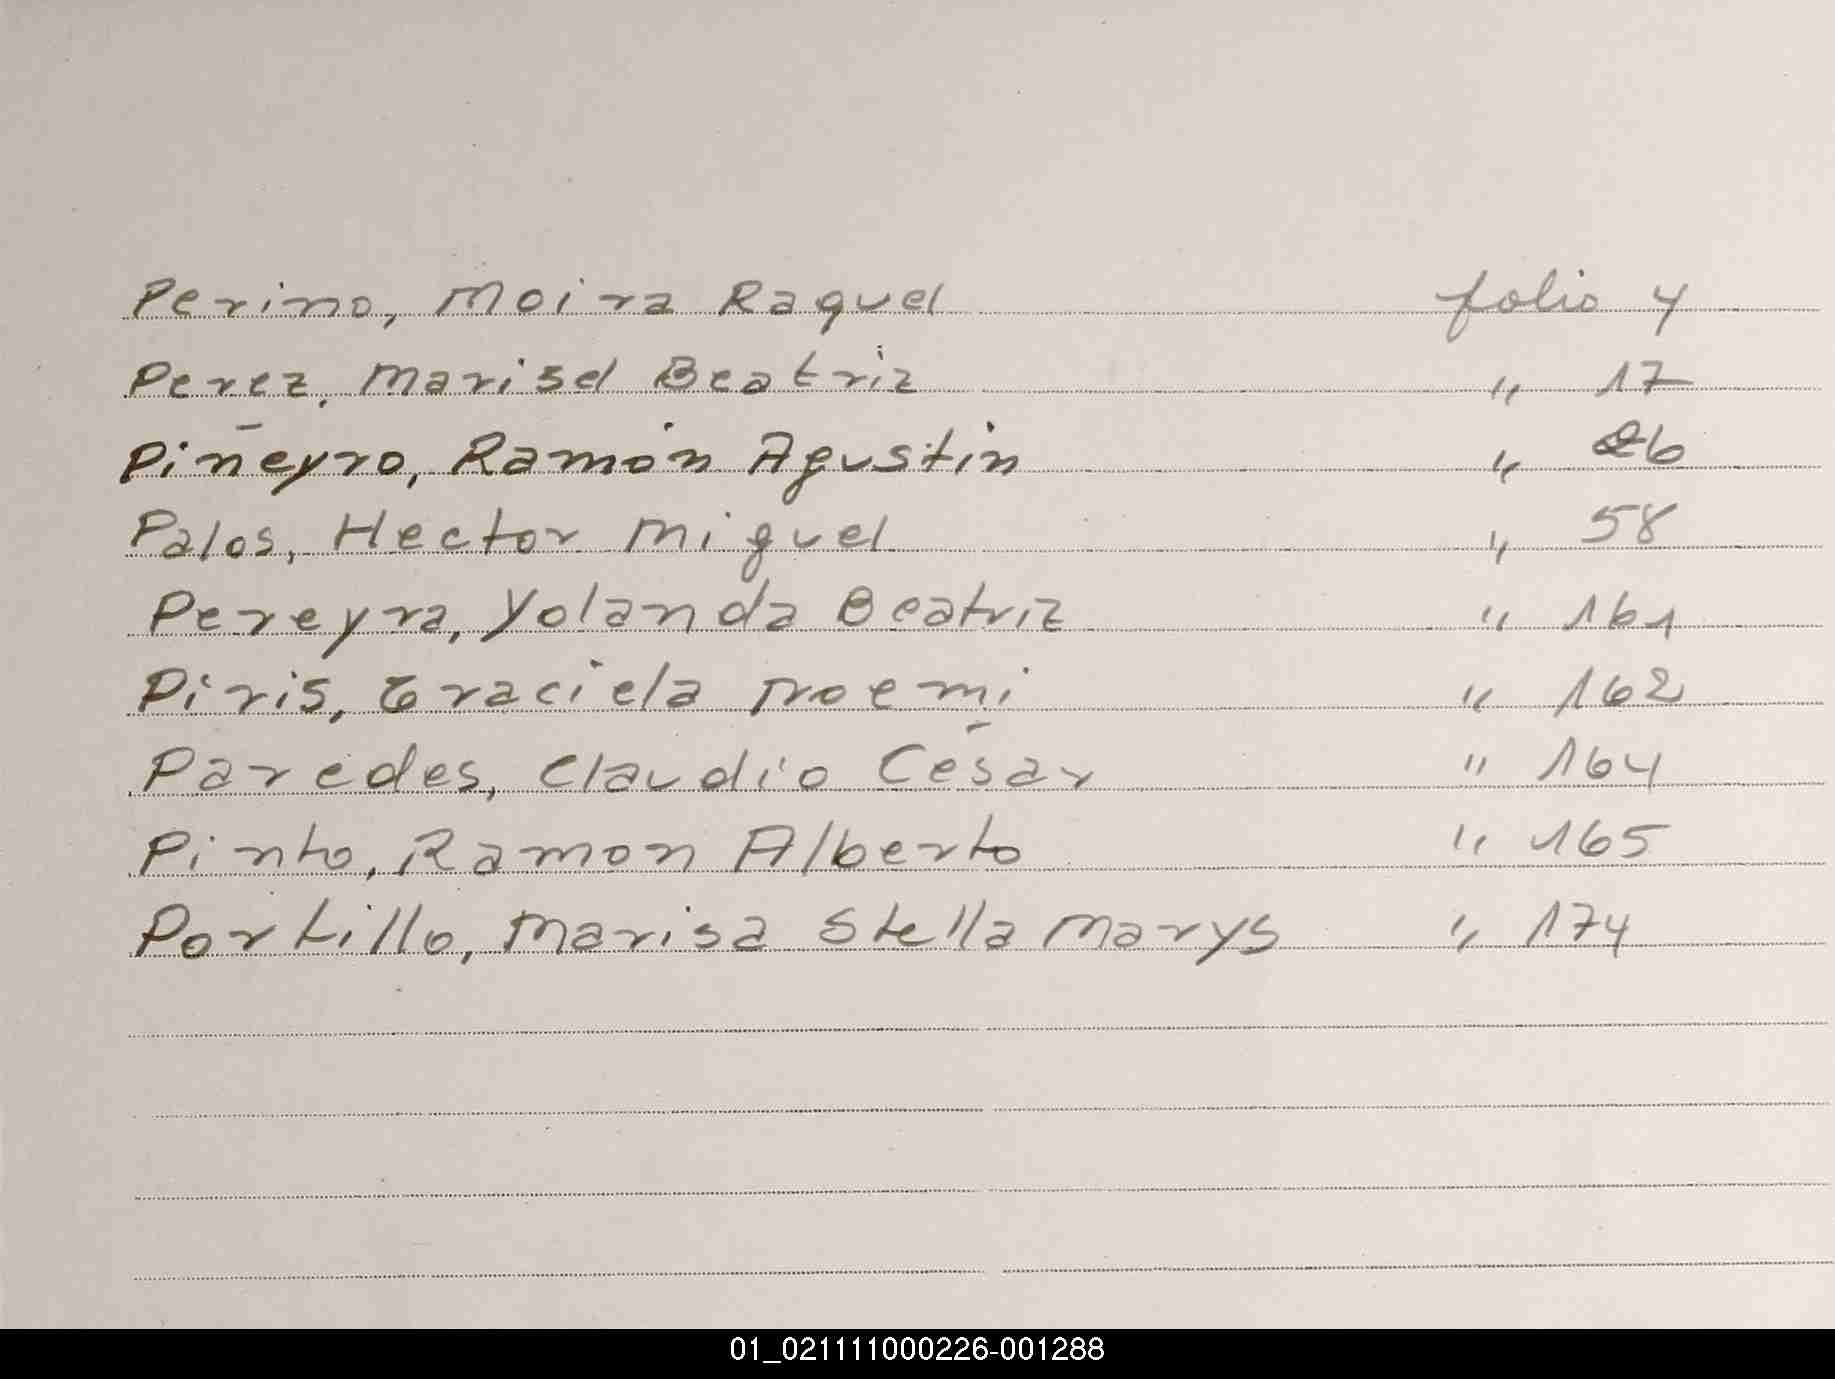 Perino, Moira Raquel folio 4
Perez, Marisel Beatriz " 17
Piñeyro, Ramón Agustín " 26
Palos, Hector Miguel " 58
Pereyra, Yolanda Beatriz " 161
Piris, Graciela Noemi " 162
Paredes, Claudio César " 164
Pinto, Ramon Alberto " 165
Portillo, Marisa Stella Marys " 174
01_021111000226-001288